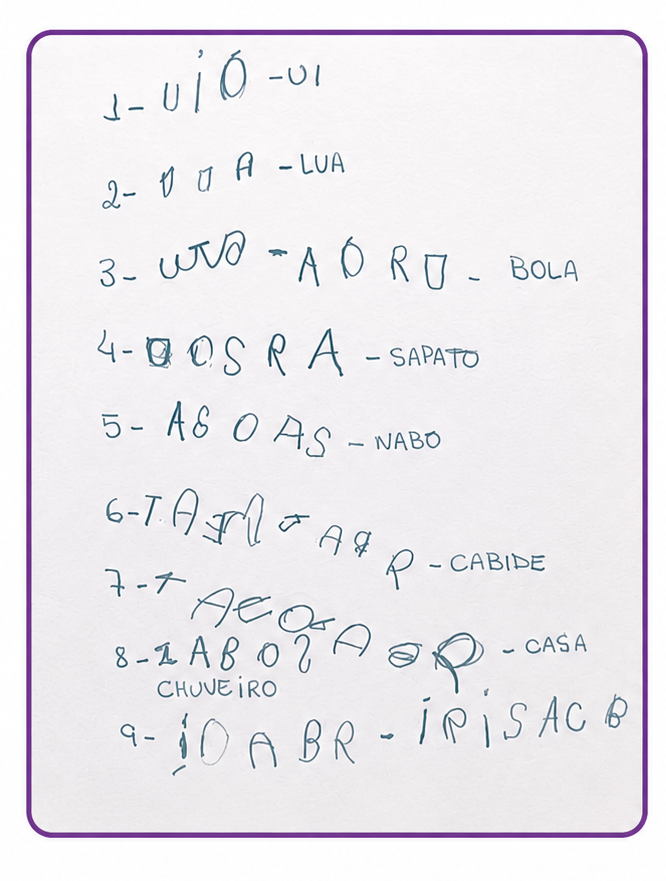 1- UIÓ - UI
2- U U A - LUA
3- - A O R U - BOLA
4- O S R A - SAPATO
5- A S O A S - NABO
6- T A A P - CABIDE
7- A E O A
8- I A B O - CASA
CHUVEIRO
9- I O A B R - I R I S A C B